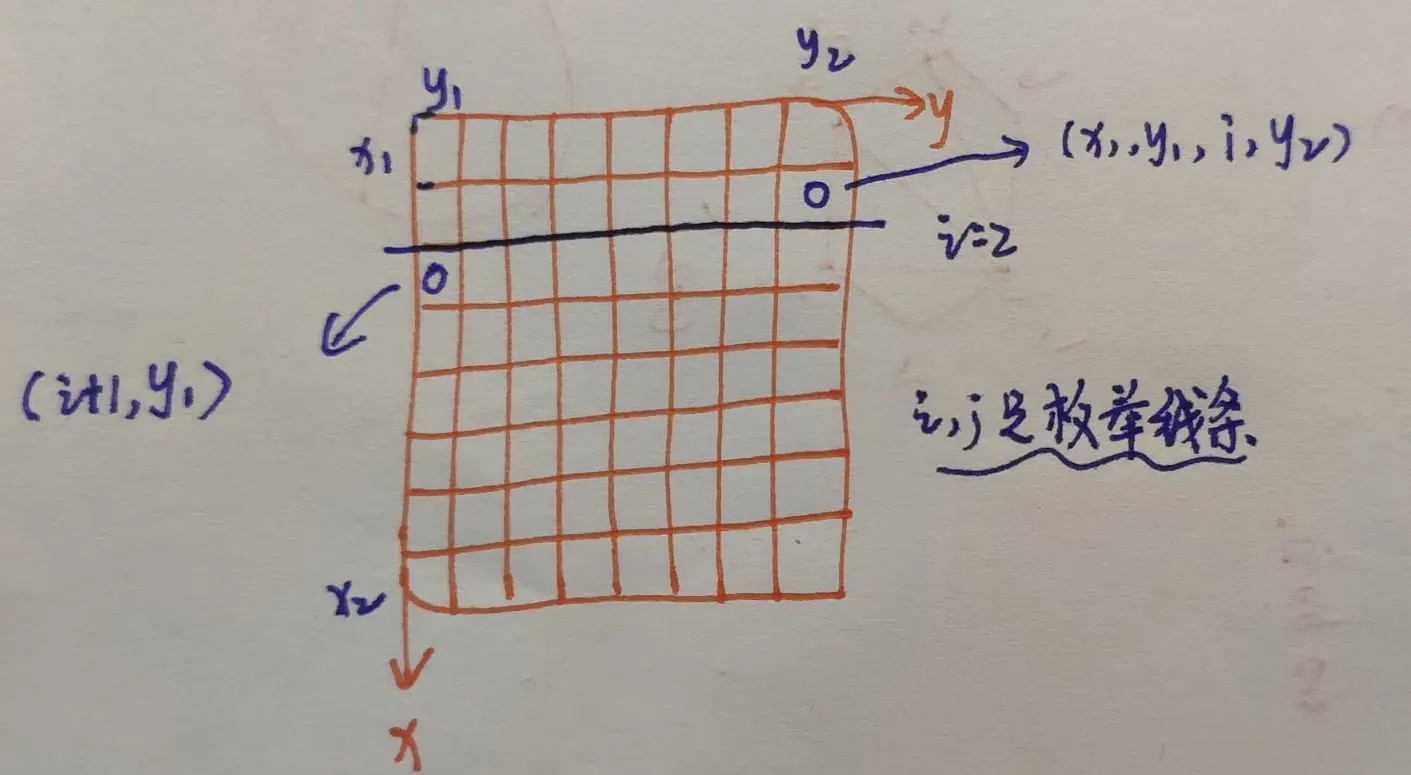 y₂
y₁
y
x₁
(x₁,y₁,i,y₂)
0
i=2
0
(i+1,y₁)
i,j是枚举线条
x₂
x